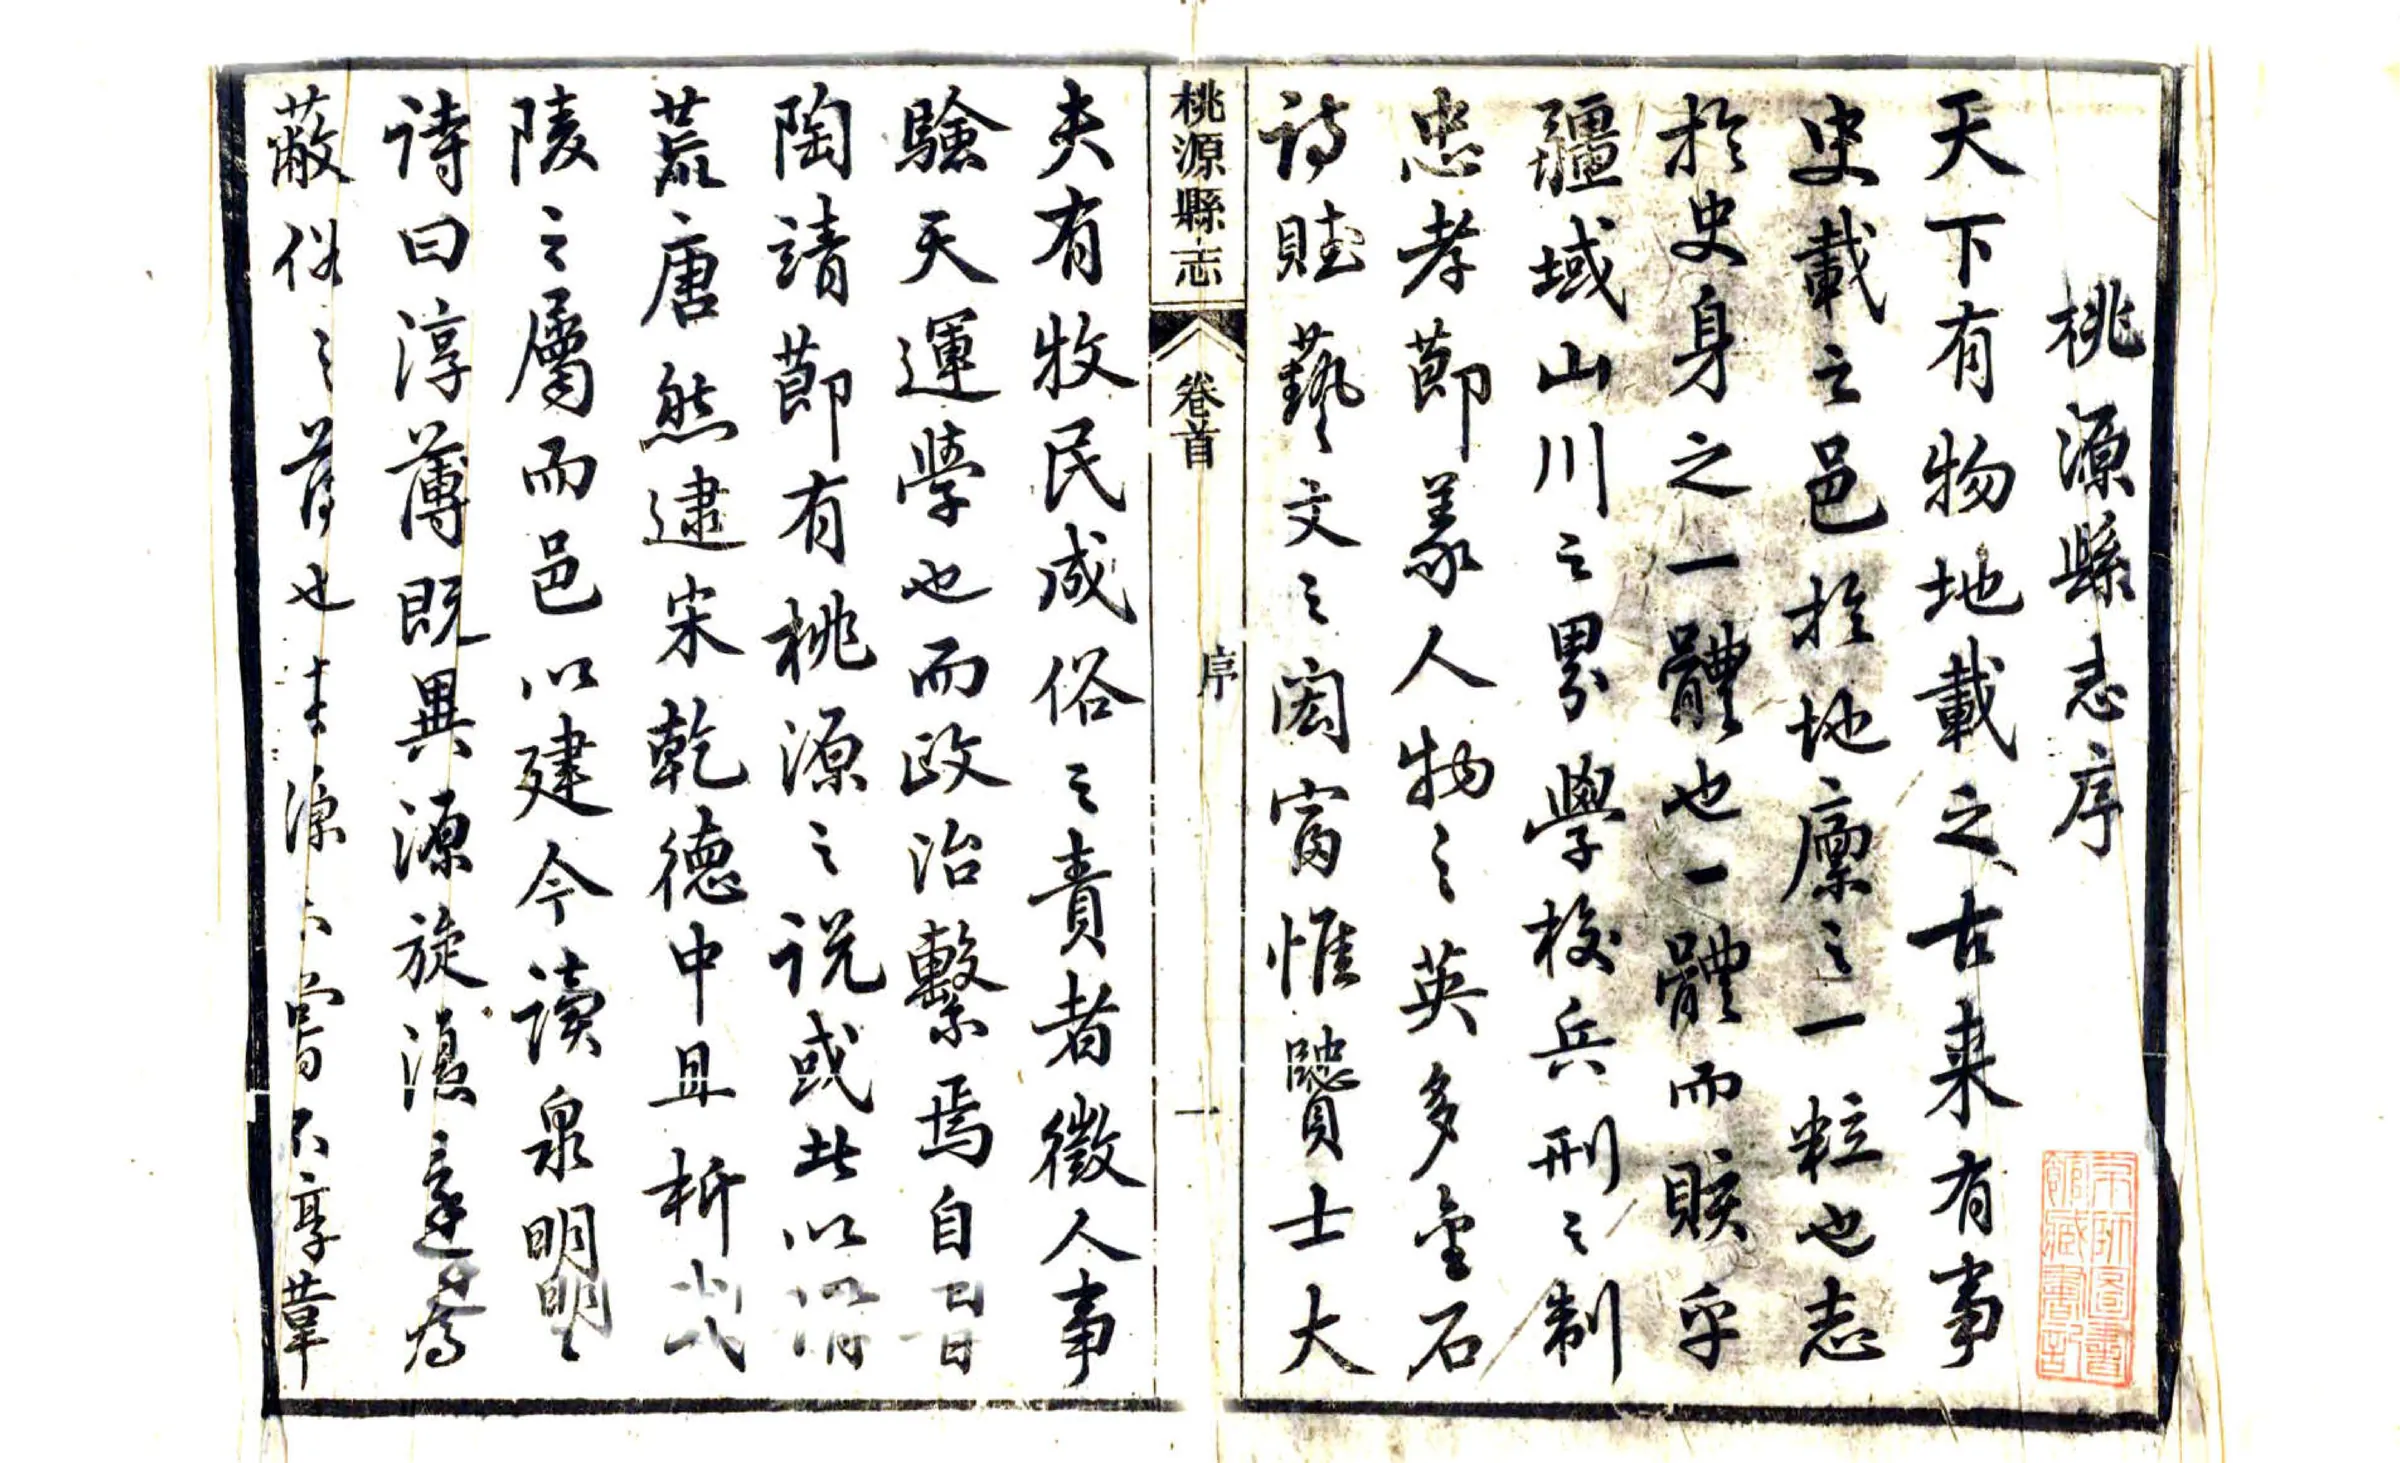 桃源縣志序
天下有物地載之古来有事
史載之邑於地廪之一粒也志
於史身之一體也一體而賅乎
疆域山川之界學校兵刑之制
忠孝節義人物之英多金石
詩賦藝文之閎富惟賢士大
桃源縣志
卷首
序
一
夫有牧民成俗之責者徵人事
驗天運學也而政治繫焉自晋
陶靖節有桃源之説或此以渭
荒唐然逮宋乾德中且析武
陵之屬而邑以建今讀泉明
诗曰淳薄既異源旋復還
蔽俗之旨也
源
嘗不